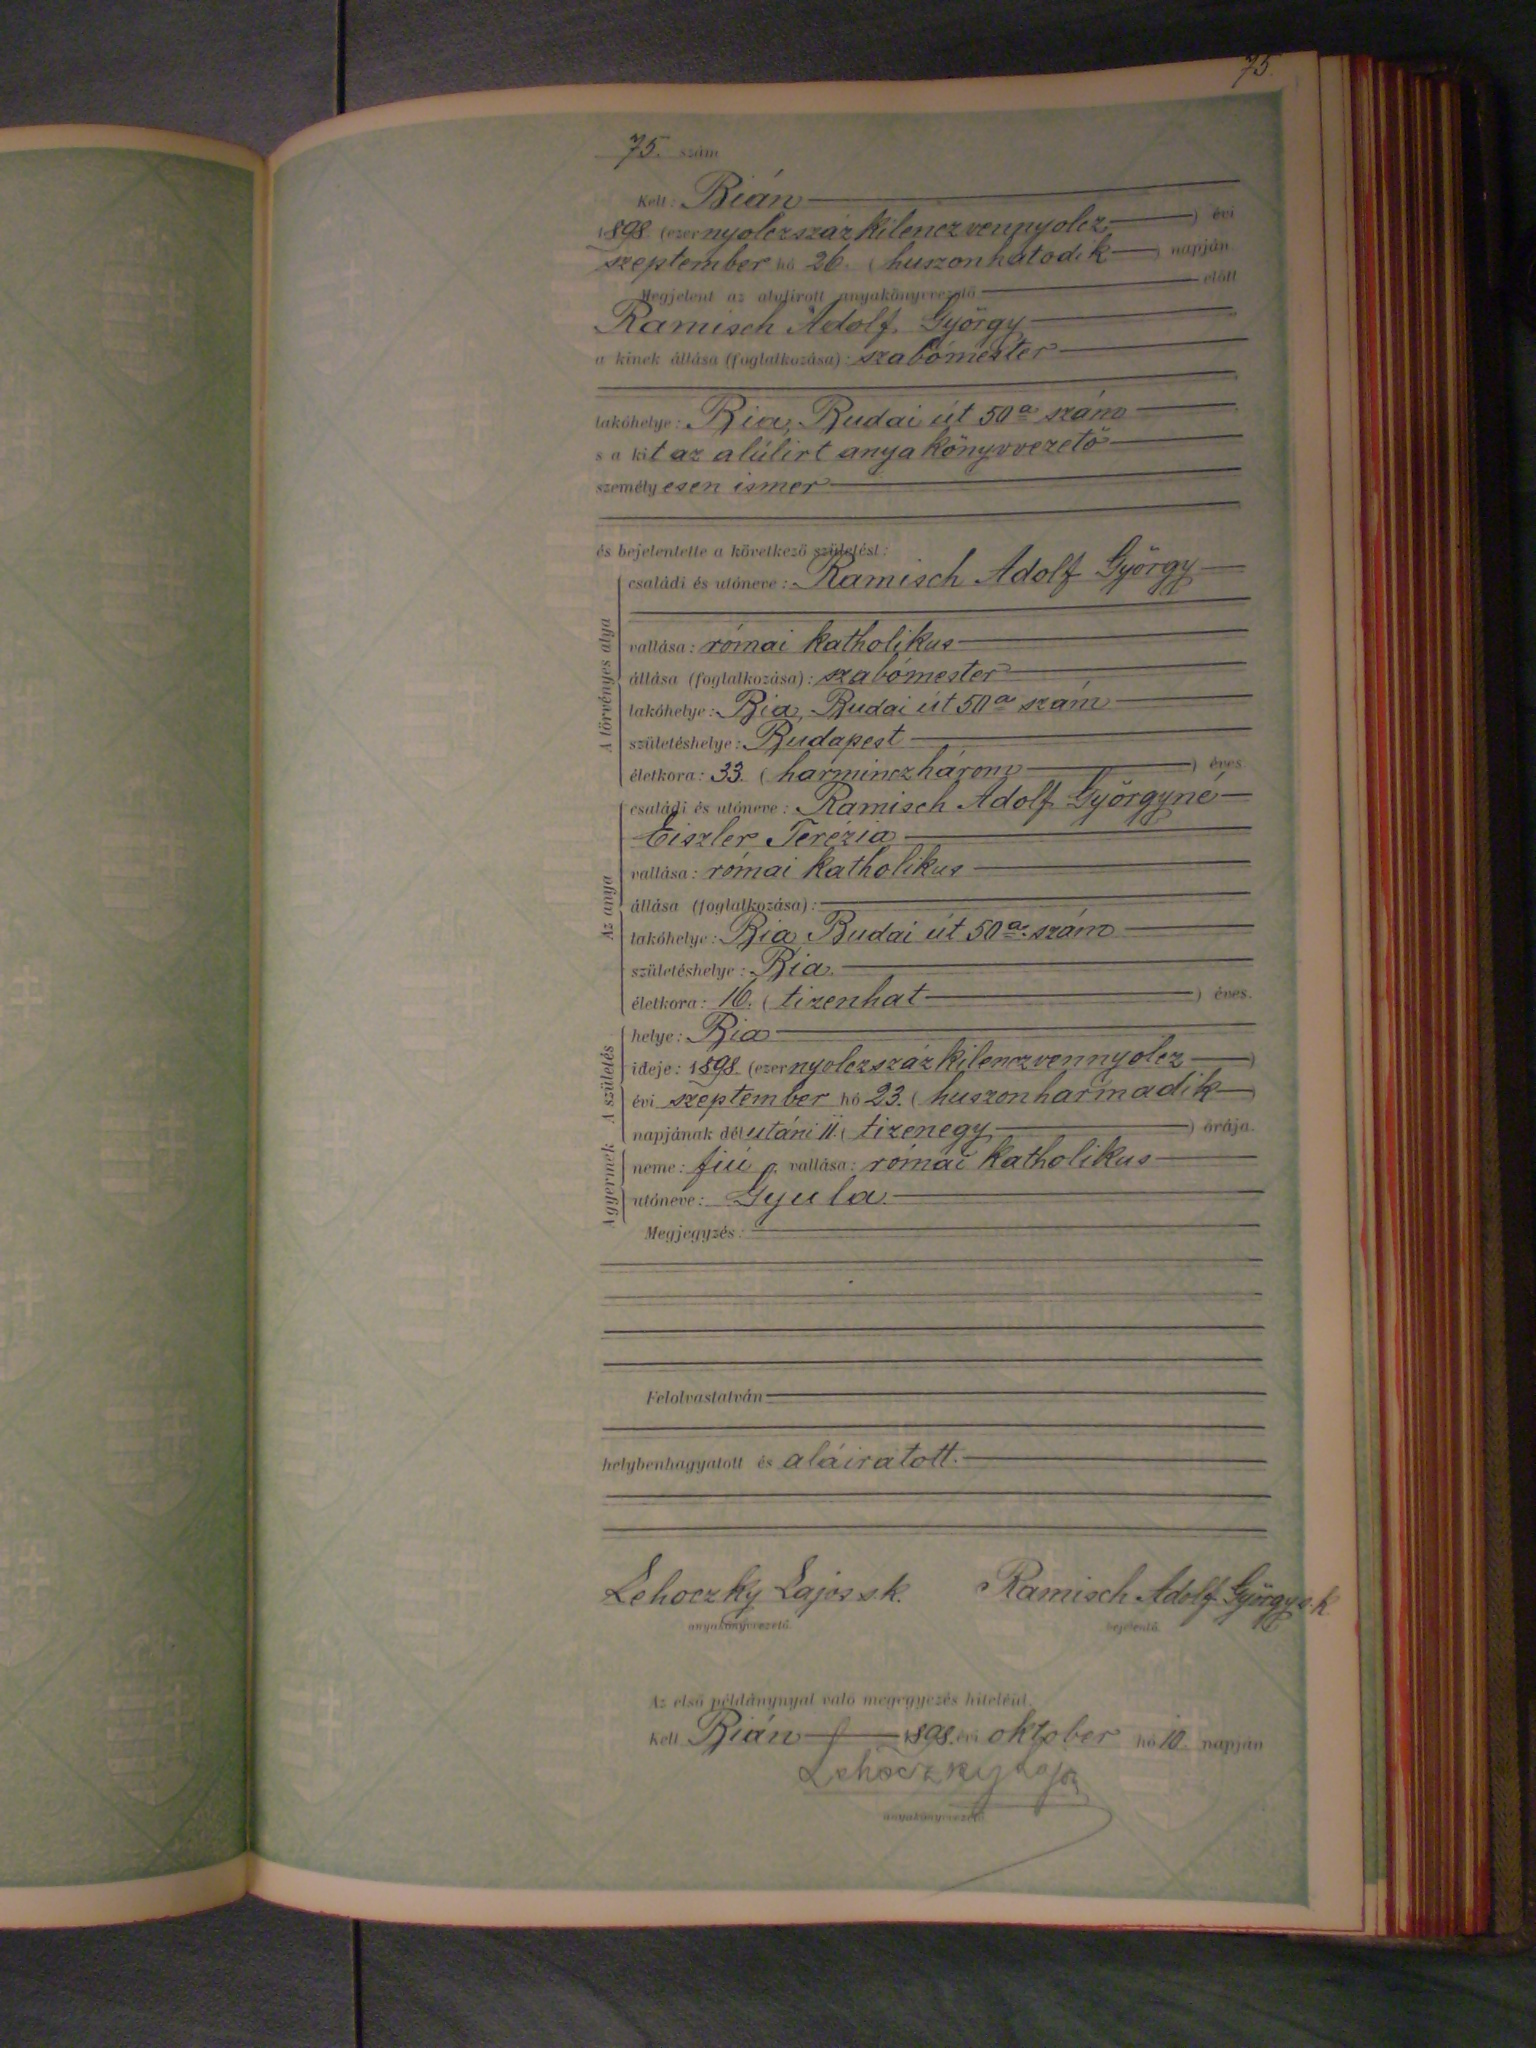 75.
75. szám
Kelt: Bián
1898. (ezernyolczszázkilenczvennyolcz) évi
szeptember hó 26. (huszonhatodik) napján.
Megjelent az alulirott anyakönyvvezető előtt
Ramisch Adolf György
a kinek állása (foglalkozása): szabómester
lakóhelye: Bia, Budai út 50a szám
s a kit az alúlirt anyakönyvvezető
személyesen ismer
és bejelentette a következő születést:
A törvényes atya
családi és utóneve: Ramisch Adolf György
vallása: római katholikus
állása (foglalkozása): szabómester
lakóhelye: Bia, Budai út 50a szám
születéshelye: Budapest
életkora: 33. (harminczhárom) éves.
Az anya
családi és utóneve: Ramisch Adolf Györgyné
Eiszler Terézia
vallása: római katholikus
állása (foglalkozása):
lakóhelye: Bia, Budai út 50a. szám
születéshelye: Bia.
életkora: 16. (tizenhat) éves.
A születés
helye: Bia
ideje: 1898. (ezernyolczszázkilenczvennyolcz)
évi szeptember hó 23. (huszonharmadik)
napjának délutáni 11. (tizenegy) órája.
A gyermek
neme: fiú vallása: római katholikus
utóneve: Gyula.
Megjegyzés:
Felolvastatván
helybenhagyatott és aláiratott.
Lehoczky Lajos sk. Ramisch Adolf György s.k.
anyakönyvvezető. bejelentő.
Az első példánynyal való megegyezés hiteléül.
Kelt Bián 1898. évi oktober hó 10. napján
Lehoczky Lajos
anyakönyvvezető.